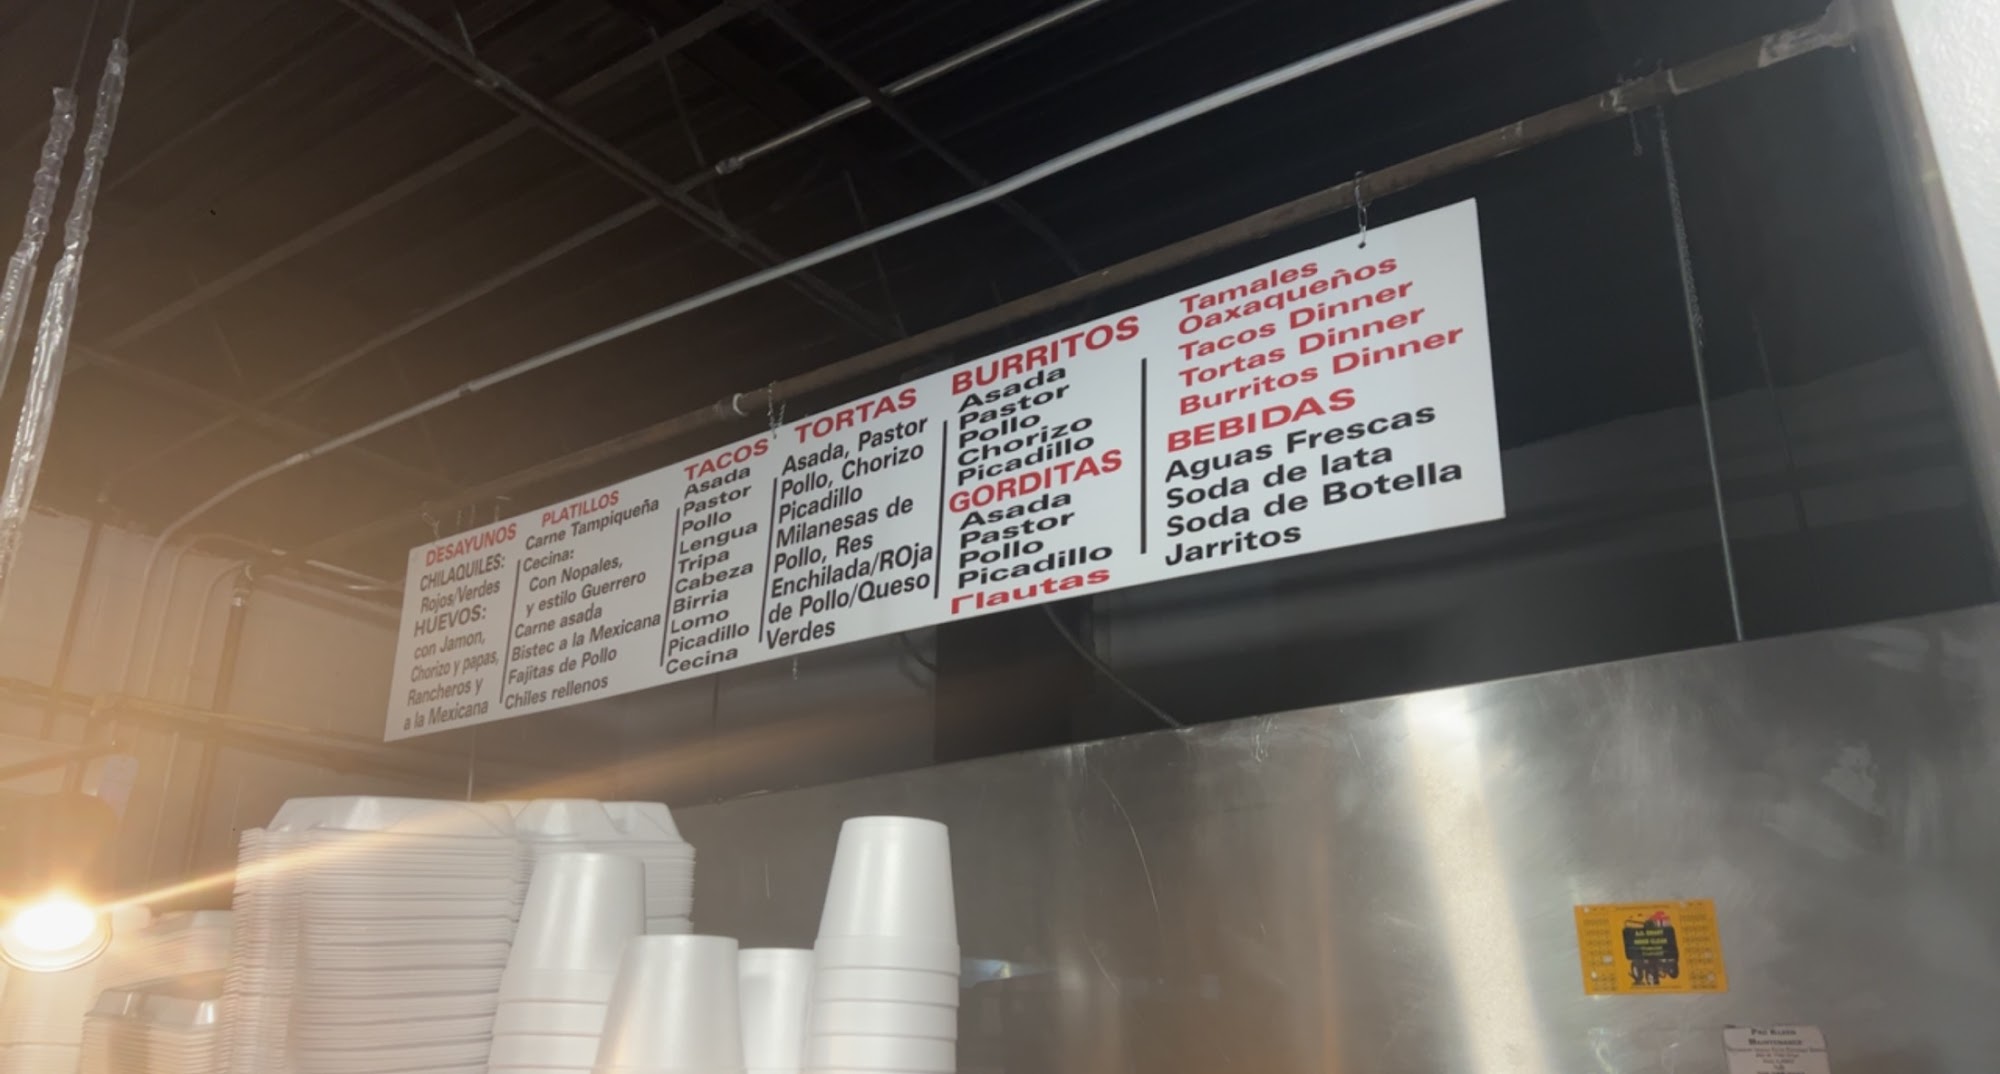 DESAYUNOS
CHILAQUILES:
Rojos/Verdes
HUEVOS:
con Jamon,
Chorizo y papas,
Rancheros y
a la Mexicana
PLATILLOS
Carne Tampiqueña
Cecina:
Con Nopales,
y estilo Guerrero
Carne asada
Bistec a la Mexicana
Fajitas de Pollo
Chiles rellenos
TACOS
Asada
Pastor
Pollo
Lengua
Tripa
Cabeza
Birria
Lomo
Picadillo
Cecina
TORTAS
Asada, Pastor
Pollo, Chorizo
Picadillo
Milanesas de
Pollo, Res
Enchilada/ROja
de Pollo/Queso
Verdes
BURRITOS
Asada
Pastor
Pollo
Chorizo
Picadillo
GORDITAS
Asada
Pastor
Pollo
Picadillo
Flautas
Tamales
Oaxaqueños
Tacos Dinner
Tortas Dinner
Burritos Dinner
BEBIDAS
Aguas Frescas
Soda de lata
Soda de Botella
Jarritos
Maintenance